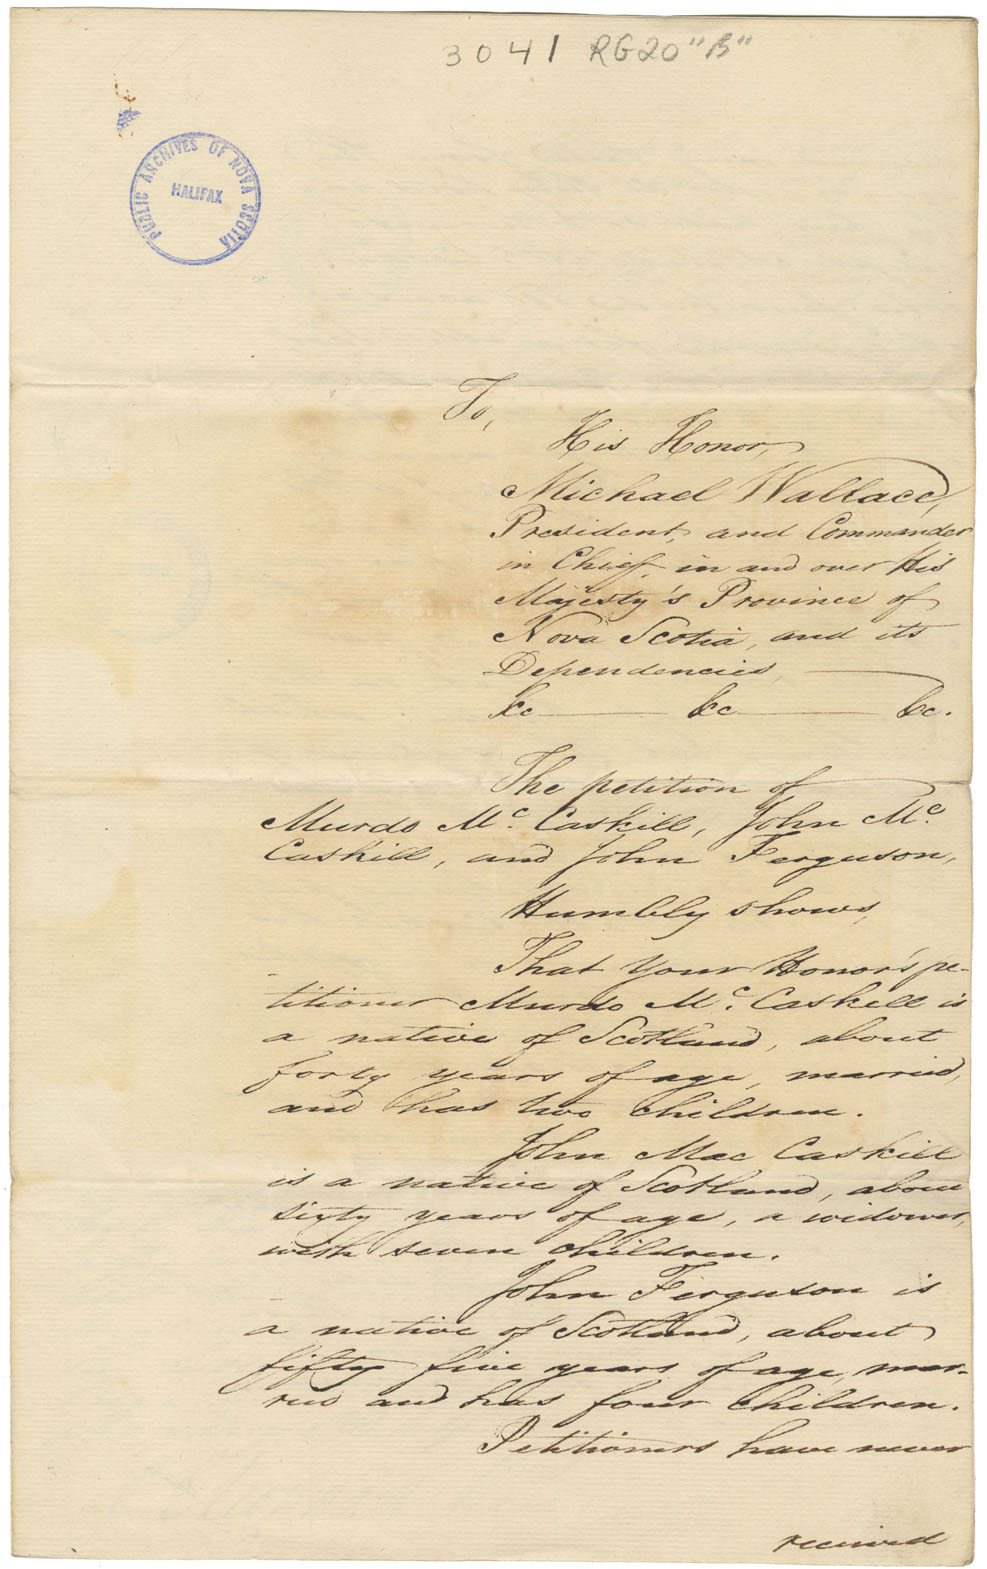 3041 RG20 "B"
PUBLIC ARCHIVES OF NOVA SCOTIA
HALIFAX
To,
His Honor,
Michael Wallace,
President, and Commander
in Chief, in and over His
Majesty's Province of
Nova Scotia, and its
Dependencies,
&c &c &c.
The petition of
Murdo Mc. Caskill, John Mc.
Caskill, and John Ferguson,
Humbly shows,
That your Honor's pe-
titioner Murdo Mc. Caskill is
a native of Scotland, about
forty years of age, married,
and has two children.
John Mac Caskill
is a native of Scotland, about
sixty years of age, a widower,
with seven children.
John Ferguson is
a native of Scotland, about
fifty five years of age, mar-
ried and has four children.
Petitioners have never
received